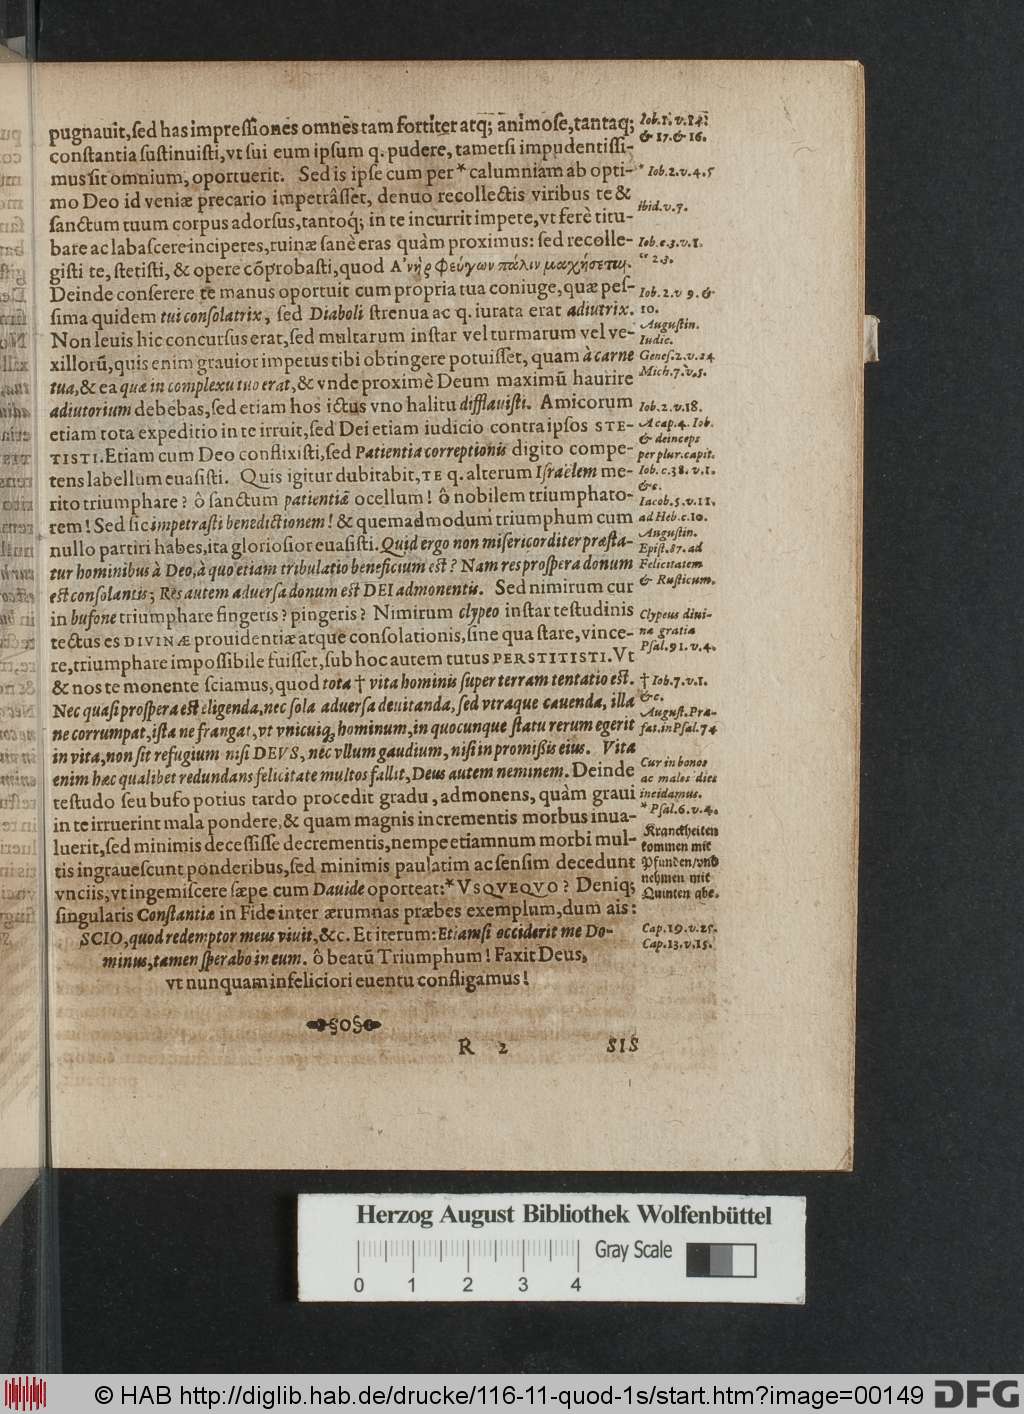 pugnauit,ſed has impreſſiones omnes tam fortiter atq; animoſe,tantaq;
conſtantia ſuſtinuiſti,vt ſui eum ipſum q. pudere, tametſi impudentiſſi-
mus ſit omnium, oportuerit. Sed is ipſe cum per * calumniam ab opti-
mo Deo id veniæ precario impetrâſſet, denuo recollectis viribus te &
ſanctum tuum corpus adorſus,tantoq́; in te incurrit impete,vt ferè titu-
bare ac labaſcere inciperes,ruinæ ſanè eras quàm proximus: ſed recolle-
giſti te, ſtetiſti, & opere cõprobaſti,quod Α᾽νὴρ Φεύγων πάλιν μαχήσεται.
Deinde conſerere te manus oportuit cum propria tua coniuge,quæ peſ-
ſima quidem tui conſolatrix, ſed Diaboli ſtrenua ac q. iurata erat adiutrix.
Non leuis hic concurſus erat,ſed multarum inſtar vel turmarum vel ve-
xillorũ,quis enim grauior impetus tibi obtingere potuiſſet, quam à carne
tua,& ea quæ in complexu tuo erat,& vnde proximè Deum maximũ haurire
adiutorium debebas,ſed etiam hos ictus vno halitu difflauiſti. Amicorum
etiam tota expeditio in te irruit,ſed Dei etiam iudicio contra ipſos STE-
TISTI. Etiam cum Deo conflixiſti,ſed Patientia correptionis digito compe-
tens labellum euaſiſti. Quis igitur dubitabit, TE q. alterum Iſraëlem me-
rito triumphare? ô ſanctum patientiæ ocellum! ô nobilem triumphato-
rem! Sed ſic impetraſti benedictionem! & quemadmodum triumphum cum
nullo partiri habes,ita glorioſior euaſiſti. Quid ergo non miſericorditer præſta-
tur hominibus à Deo,à quo etiam tribulatio beneficium eſt? Nam res proſpera donum
eſt conſolantis; Res autem aduerſa donum eſt DEI admonentis. Sed nimirum cur
in bufone triumphare fingeris? pingeris? Nimirum clypeo inſtar teſtudinis
tectus es DIVINÆ prouidentiæ atque conſolationis,ſine qua ſtare,vince-
re,triumphare impoſſibile fuiſſet,ſub hoc autem tutus PERSTITISTI. Vt
& nos te monente ſciamus,quod tota † vita hominis ſuper terram tentatio eſt.
Nec quaſi proſpera eſt eligenda,nec ſola aduerſa deuitanda, ſed vtraque cauenda, illa
ne corrumpat,iſta ne frangat,vt vnicuiq; hominum,in quocunque ſtatu rerum egerit
in vita,non ſit refugium niſi DEVS, nec vllum gaudium, niſi in promißis eius. Vita
enim hæc qualibet redundans felicitate multos fallit, Deus autem neminem. Deinde
teſtudo ſeu bufo potius tardo procedit gradu, admonens, quàm graui
in te irruerint mala pondere,& quam magnis incrementis morbus inua-
luerit,ſed minimis deceſſiſſe decrementis,nempe etiamnum morbi mul-
tis ingraueſcunt ponderibus,ſed minimis paulatim ac ſenſim decedunt
vnciis,vt ingemiſcere ſæpe cum Dauide oporteat:* VSQVEQVO? Deniq;
ſingularis Conſtantiæ in Fide inter ærumnas præbes exemplum,dum ais:
SCIO, quod redemptor meus viuit,&c. Et iterum: Etiamſi occiderit me Do-
minus,tamen ſperabo in eum. ô beatũ Triumphum! Faxit Deus,
vt nunquam infeliciori euentu confligamus!
§o§
R 2 SIS
Iob.1.v.14.
& 17.& 16.
* Iob.2.v.4.5
ibid.v.7.
Iob.c.3.v.1.
2.3.
Iob.2.v 9.&
10.
Auguſtin.
Iudic.
Geneſ.2.v.24
Mich.7.v.5.
Iob.2.v.18.
A cap.4. Iob.
& deinceps
per plur.capit.
Iob.c.38.v.1.
&c.
Iacob.5.v.11.
ad Heb.c.10.
Auguſtin.
Epiſt.87.ad
Felicitatem
& Ruſticum.
Clypeus diui-
na gratia
Pſal.91.v.4.
† Iob.7.v.1.
&c.
Auguſt.Præ-
fat.in Pſal.74
Cur in bonos
ac malos dies
incidamus.
* Pſal.6.v.4.
Kranckheiten
kommen mit
Pfunden/vnd
nehmen mit
Quinten abe.
Cap.19.v.25.
Cap.13.v.15.
Herzog August Bibliothek Wolfenbüttel
Gray Scale
0 1 2 3 4
© HAB http://diglib.hab.de/drucke/116-11-quod-1s/start.htm?image=00149
DFG